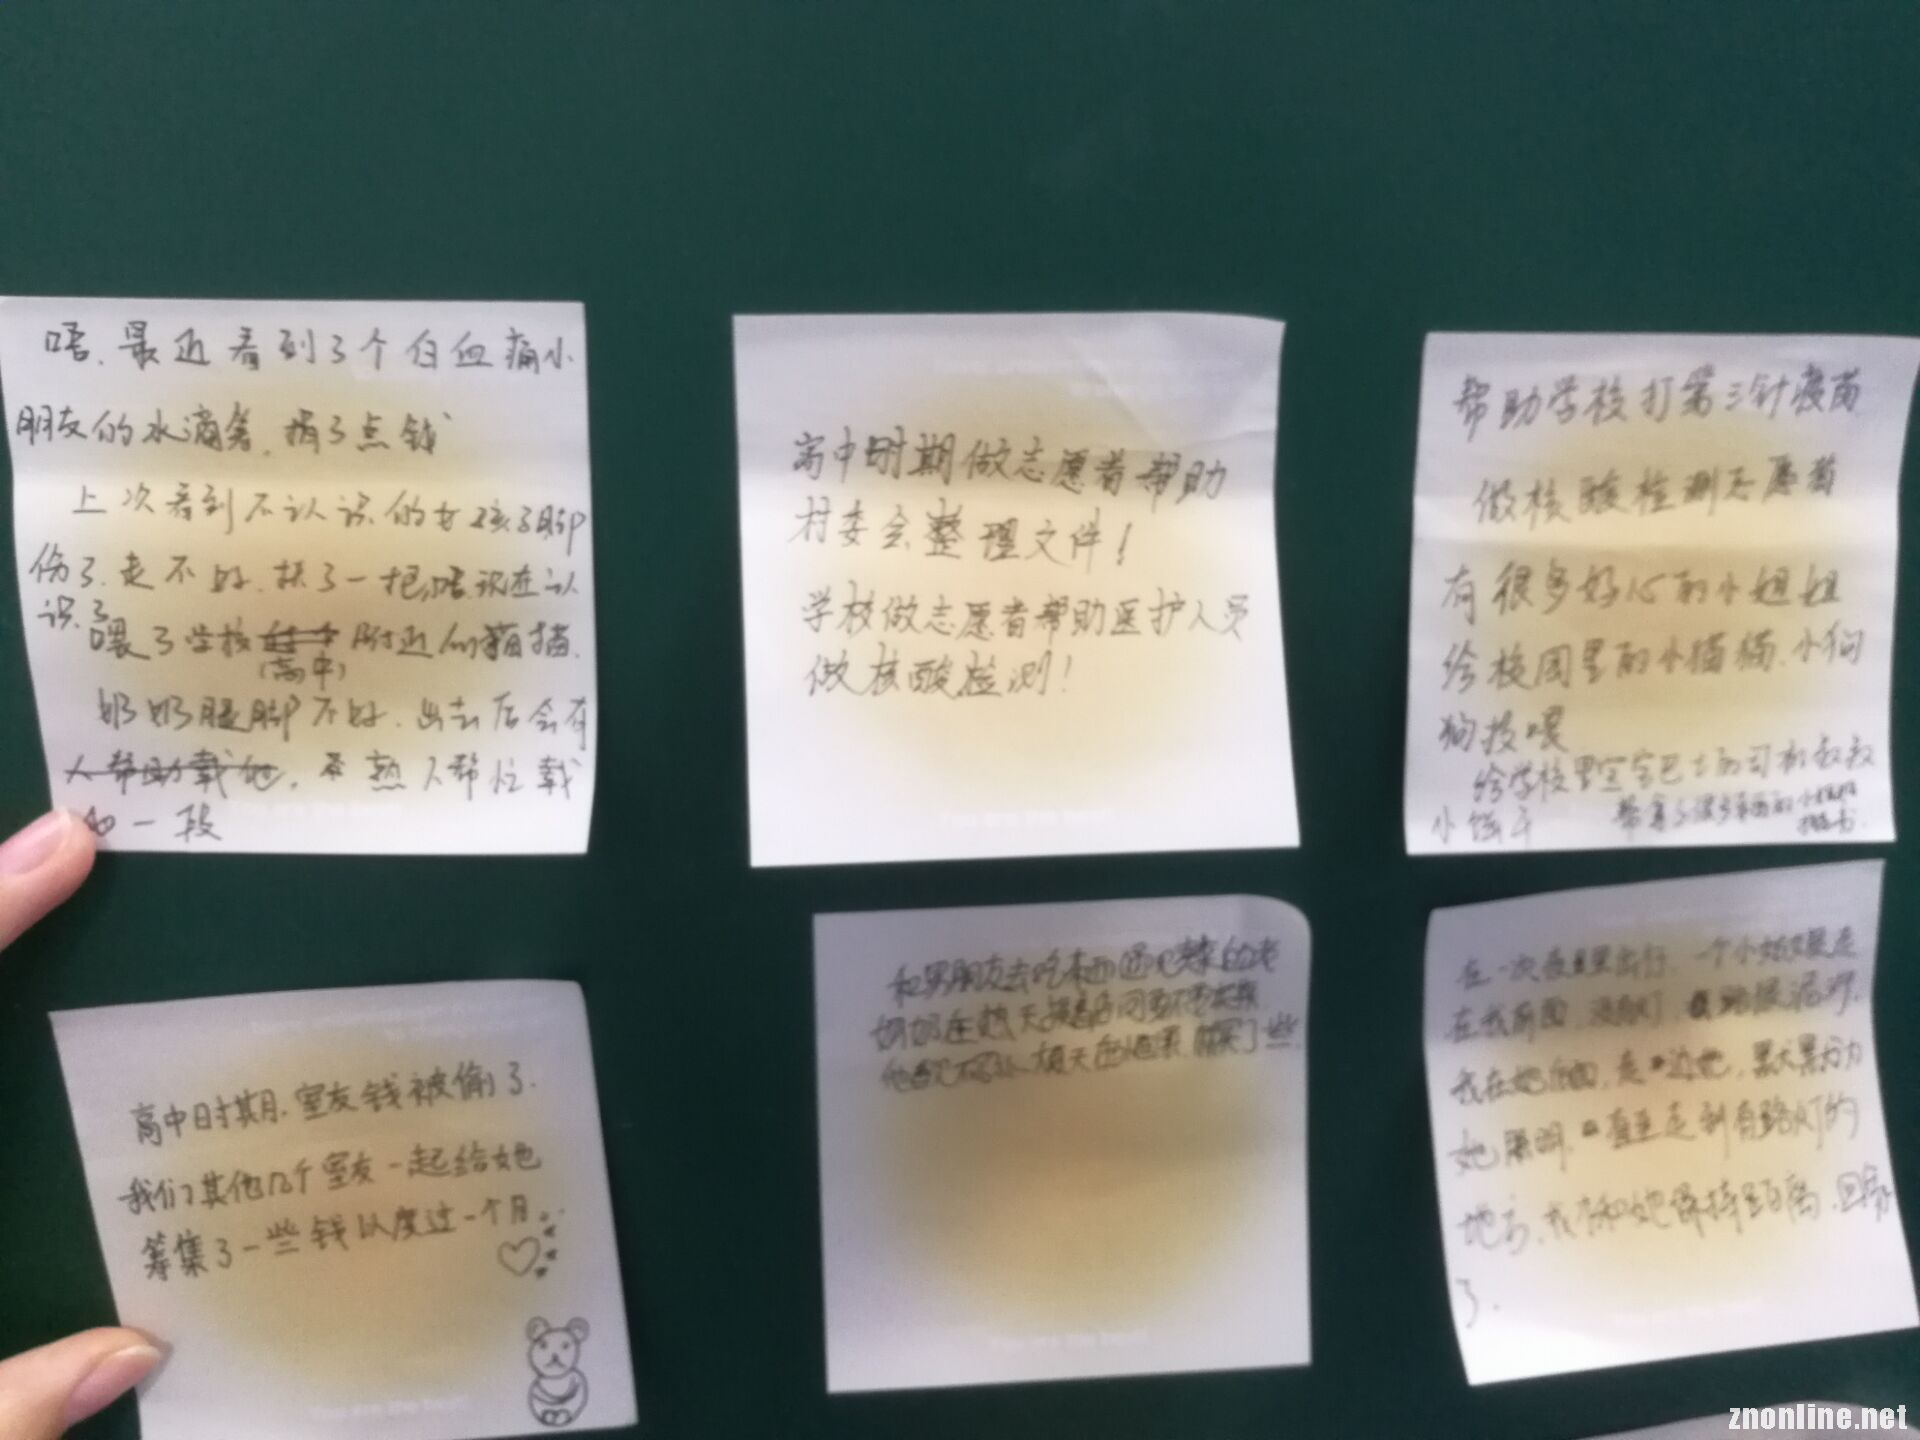 唔，最近看到了个白血病小
朋友的水滴筹，捐了点钱
上次看到不认识的女孩子脚
伤了，走不好，扶了一把，唔，现在认
识了
喂了学校附近的猫猫.
(高中)
奶奶腿脚不好，出去后会有
人帮助载她，熟人帮忙载
她一段
高中时期做志愿者帮助
村委会整理文件！
学校做志愿者帮助医护人员
做核酸检测！
帮助学校打第三针疫苗
做核酸检测志愿者
有很多好心的小姐姐
给校园里的小猫猫、小狗
狗投喂
给学校里巴士的司机叔叔
小饼干
高中时期，室友钱被偷了.
我们其他几个室友一起给她
筹集了一些钱以度过一个月..
和男朋友去吃东西遇见卖菜的老
奶奶在
买了一些
在一次夜里出行，一个小姑娘走
在我前面，没有灯，路很泥泞，
我在她后面，走边她，黑为
她照明，直至走到有路灯的
地方，我才和她保持距离，回
了.
znonline.net